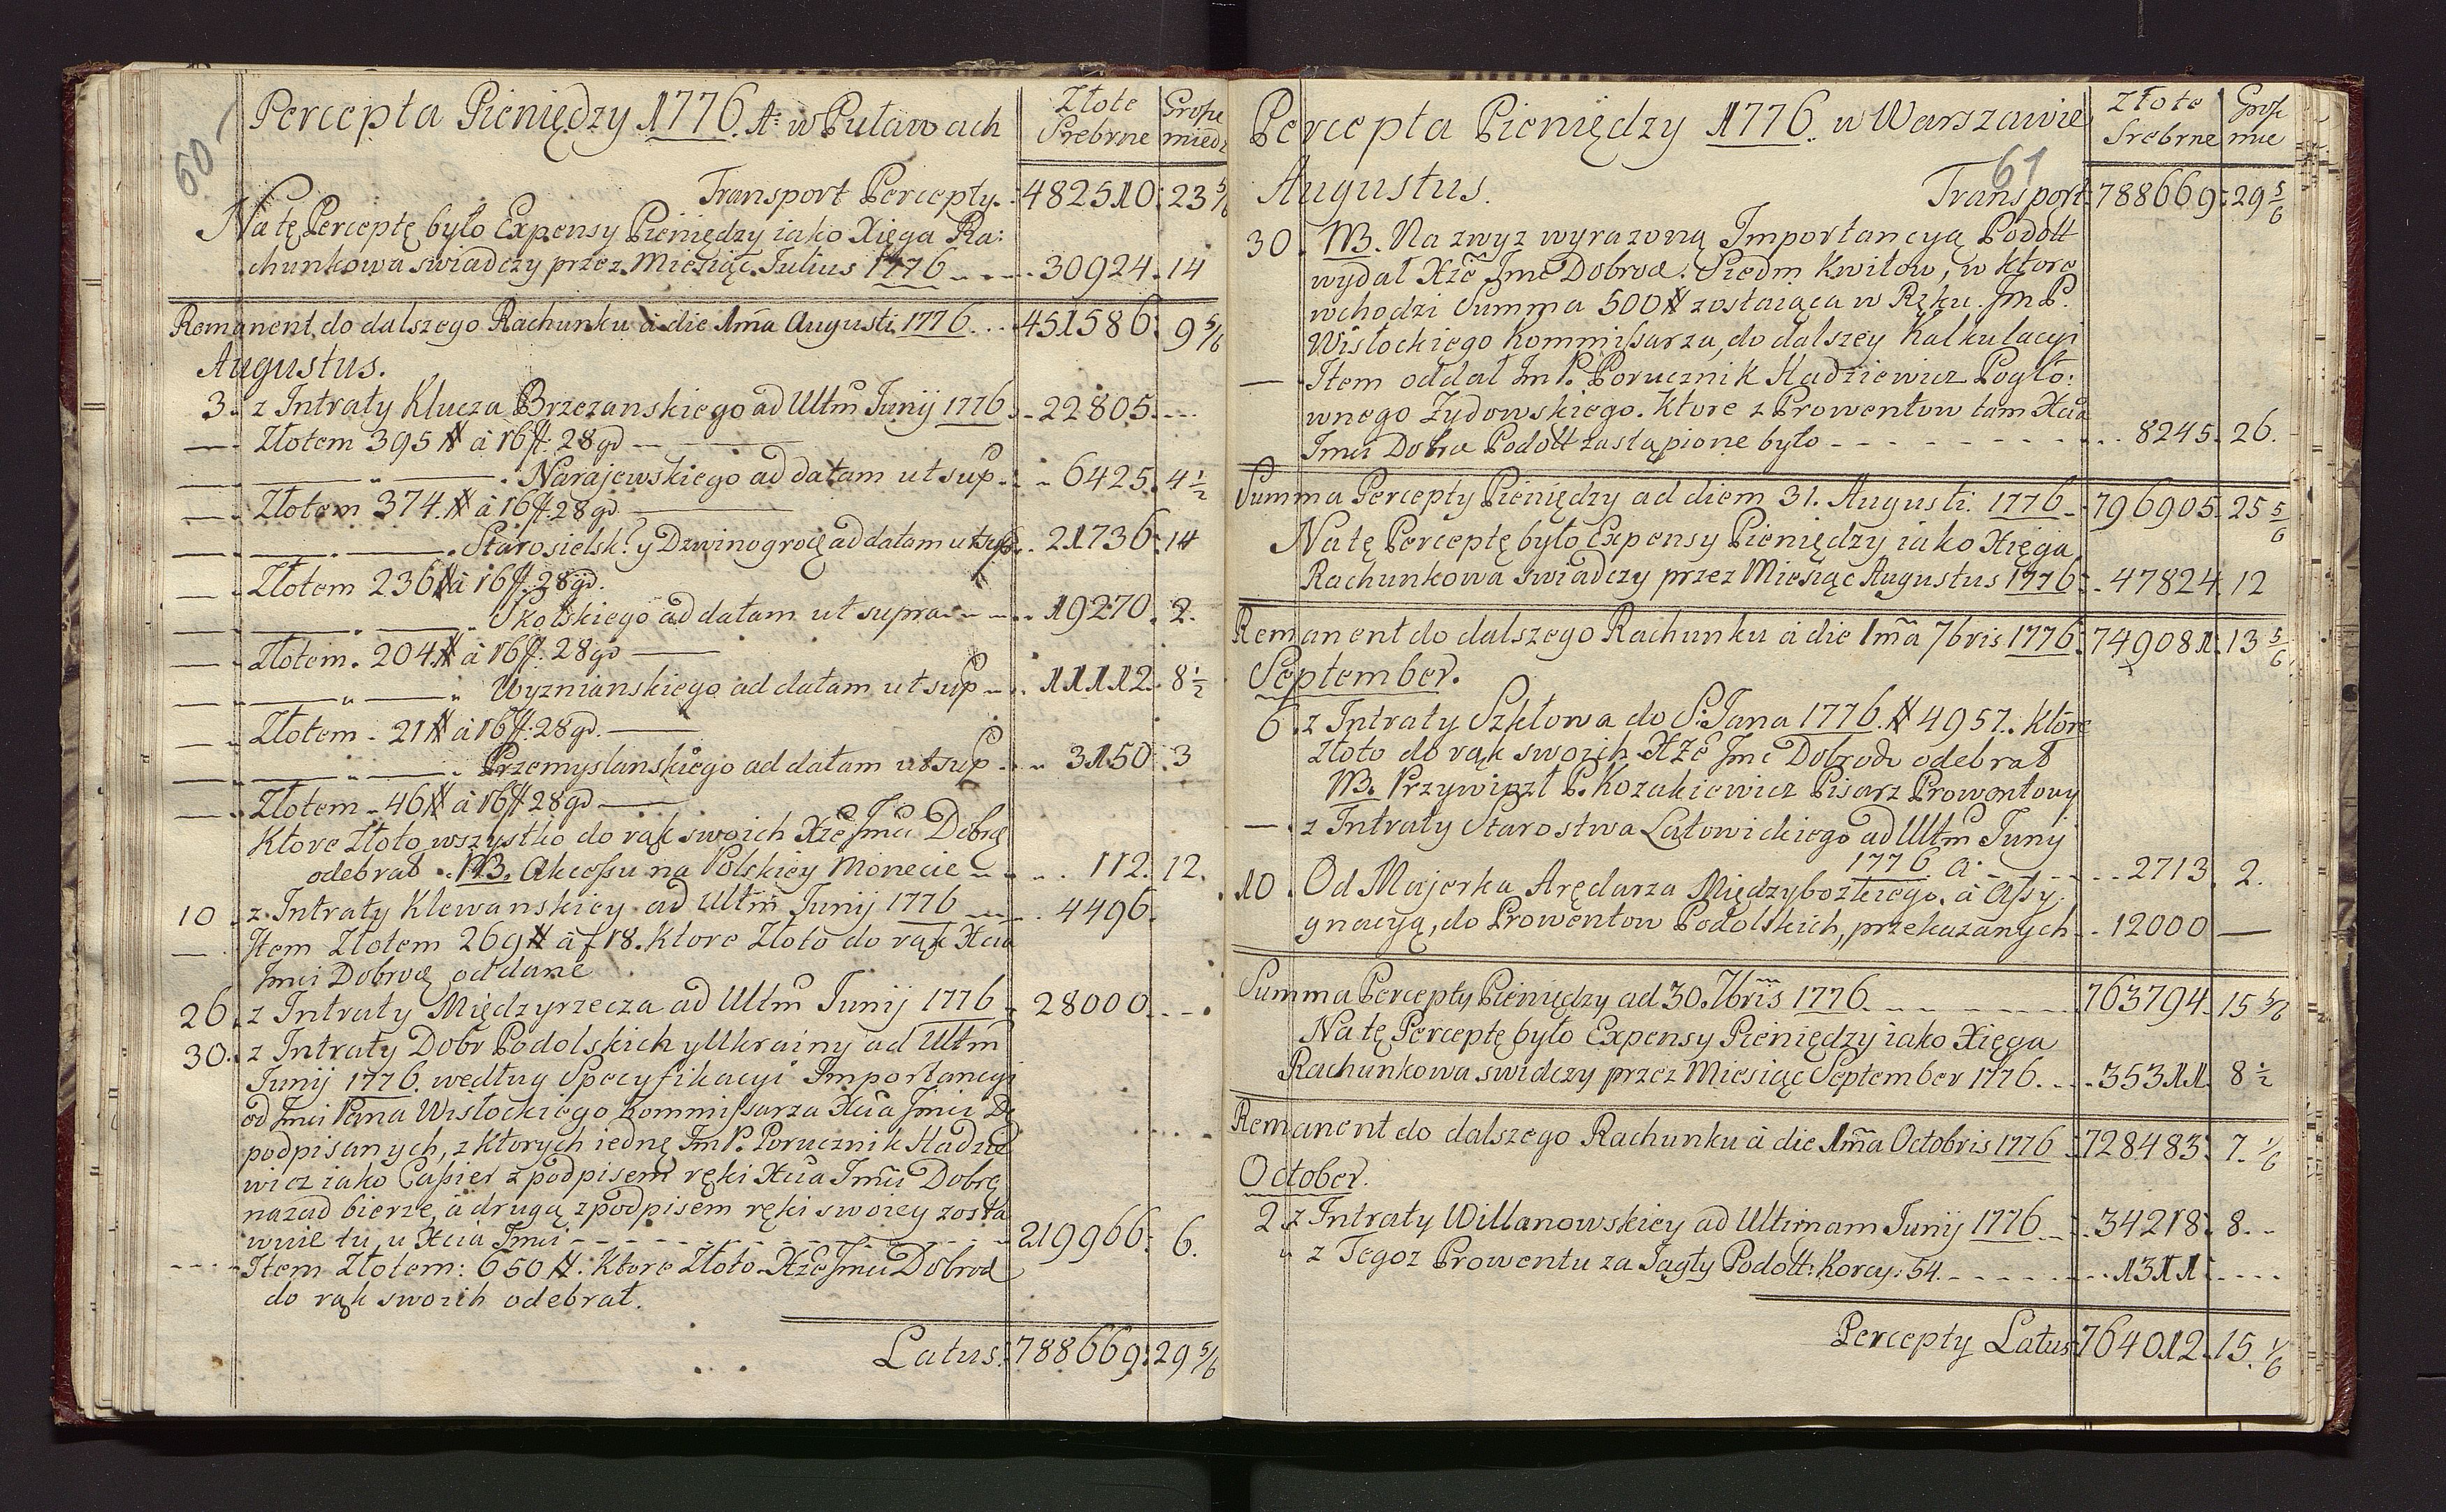 60
Percepta Pieniędzy 1776. A: w Puławach
Złote Srebrne
Grosze miedz
Transport Percepty. 482510: 23 5/6
Na tę Perceptę było Expensy Pieniędzy iako Xięga Ra:
chunkowa swiadczy przez Miesiąc Julius 1776 30924. 14
Remanent do dalszego Rachunku à die 1mã Augusti 1776 451586: 9 5/6
Augustus.
3. z Intraty Klucza Brzezanskiego ad Ultm Junij 1776 22805
Złotem 395 # à 16 ff. 28 gd
Narajewskiego ad datam ut sup 6425. 4 1/2
Złotem 374 # à 16 ff. 28 gd
Starosielsk: y Dzwinogroę ad datam ut sup 21736. 14
Złotem 236 # à 16 ff. 28 gd.
Skolskiego ad datam ut supra 19270. 2.
Złotem. 204 # à 16 ff. 28 gd
Wyznianskiego ad datam ut sup 11112. 8 1/2
Złotem - 21 # à 16 ff. 28 gd.
Przemyslanskiego ad datam ut sup 3150. 3
Złotem - 46 # à 16 ff 28 gd
Ktore Złoto wszystko do rąk swoich Xże Jmci Dobrę
odebrał. NB. Akcessu na Polskiey Monecie 112. 12.
10. z Intraty Klewanskiey ad Ultm Junij 1776 4496.
Item Złotem 269 # à f 18. Ktore Złoto do rąk Xcia
Jmci Dobroę oddane
26. z Intraty Międzyrzecza ad Ultm Junij 1776 28000
30. z Intraty Dobr Podolskich y Ukrainy ad Ultm
Junij 1776. według Specyfikacyi Importancyi
od Jmci Pana Wisłockiego Kommissarza Xcia Jmci Dę
podpisanych, z ktorych iednę Jm P. Porucznik Hadzie
wicz iako Cassier z podpisem ręki Xcia Jmci Dobrę
nazad bierze, à drugą z podpisem ręki swoiey zosta
wuie tu, u Xcia Jmci 219966: 6.
Item Złotem: 650 #. Ktore Złoto Xże Jmci Dobrod
do rąk swoich odebrał.
Latus. 788669: 29 5/6
Percepta Pieniędzy 1776. w Warszawie
Złote Srebrne
Grosz mie
61
Augustus. Transport. 788669: 29 5/6
30. NB. Na zwyz wyrazoną Importancyą Podoll
wydał Xże Jmc Dobrod. Siedm Kwitow, w ktore
wchodzi Summa 500 # zostaiąca w Ręku Jm P.
Wisłockiego Kommissarza, do dalszey Kalkulacyi
Item oddał Jm P. Porucznik Hadziewicz Pogło:
wnego Zydowskiego. Ktore z Prowentow tam Xcia
Jmci Dobro Podoll zastąpione było 8245. 26.
Summa Percepty Pieniędzy ad diem 31. Augusti. 1776 796905. 25 5/6
Na tę Perceptę było Expensy Pieniędzy iako Xięga
Rachunkowa swiadczy przez Miesiąc Augustus 1776 47824. 12
Remanent do dalszego Rachunku à die 1mã 7bris 1776 749081. 13 5/6
September.
6. z Intraty Szkłowa do S: Jana 1776. # 4957. Ktore
złoto do rąk swoich Xże Jmc Dobrodę odebrał
NB. Przywiozł P. Kozakiewicz Pisarz Prowentowy
z Intraty Starostwa Latowickiego ad Ultm Junij
1776 a. 2713. 2.
10. Od Majorka Arędarza Międzybozkiego, à Assy
gnacyą, do Prowentow Podolskich, przekazanych 12000
Summa Percepty Pieniędzy ad 30. 7bris 1776 763794. 15 5/6
Na tę Perceptę było Expensy Pieniędzy iako Xięga
Rachunkowa swidczy przez Miesiąc September 1776. 35311. 8 1/2
Remanent do dalszego Rachunku à die 1mã Octobris 1776 728483. 7. 1/6
October.
2. z Intraty Willanowskiey ad Ultimam Junij 1776 34218. 8.
z Tegoz Prowentu za Jagły Podoll: Korcy: 54. 1311
Percepty Latus 764012. 15. 1/6